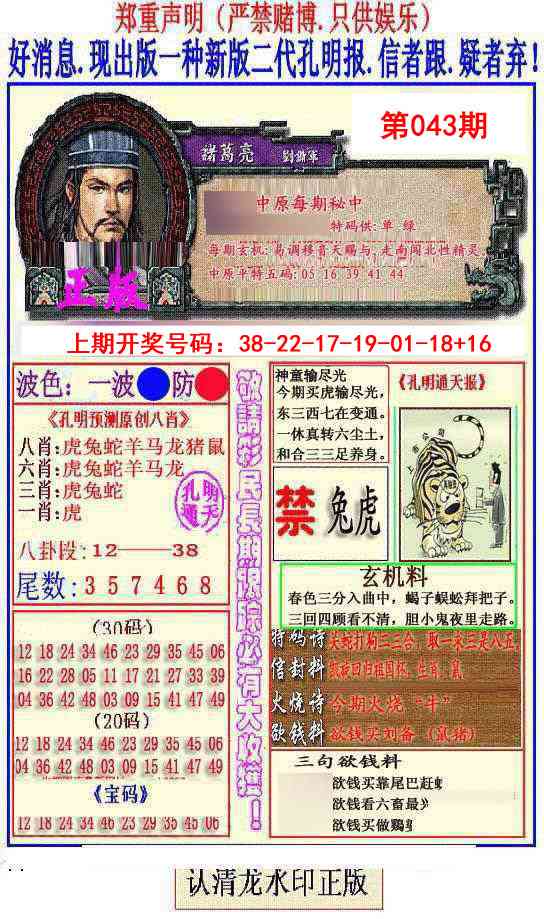 郑重声明（严禁赌博.只供娱乐）
好消息.现出版一种新版二代孔明报.信者跟.疑者弃！
第043期
諸葛亮
中原每期秘中
特码供:单 绿
每期玄机:易调移盲天赐与;走南闯北性精灵
中原平特五码:05 16 39 41 44
正版
上期开奖号码：38-22-17-19-01-18+16
波色：一波 防
《孔明预测原创八肖》
八肖:虎兔蛇羊马龙猪鼠
六肖:虎兔蛇羊马龙
三肖:虎兔蛇
一肖:虎
孔明
通天
八卦段:12——38
尾数:357468
敬請彩民長期跟踪必有大收獲！
神童输尽光
今期买虎输尽光，
东三西七在变通。
一休真转六尘土，
和合三三足养身。
《孔明通天报》
禁 兔虎
玄机料
春色三分入曲中，蝎子蜈蚣拜把子。
三回四顾看不清，胆小鬼夜里走路。
(30码)
12 18 24 34 46 23 29 35 45 06
16 22 28 05 11 17 21 27 33 39
04 36 42 48 03 09 15 41 47 49
(20码)
12 18 24 34 46 23 29 35 45 06
04 36 42 48 03 09 15 41 47 49
《宝码》
12 18 24 34 46 23 29 35 45 06
特码诗 关蛇打狗三三合，取一末三是八五
信封料
火烧诗 今期火烧“牛”
欲钱料 欲钱买刘备（鼠猪）
三句欲钱料
欲钱买靠尾巴赶
欲钱看六畜最
欲钱买做鷄
认清龙水印正版